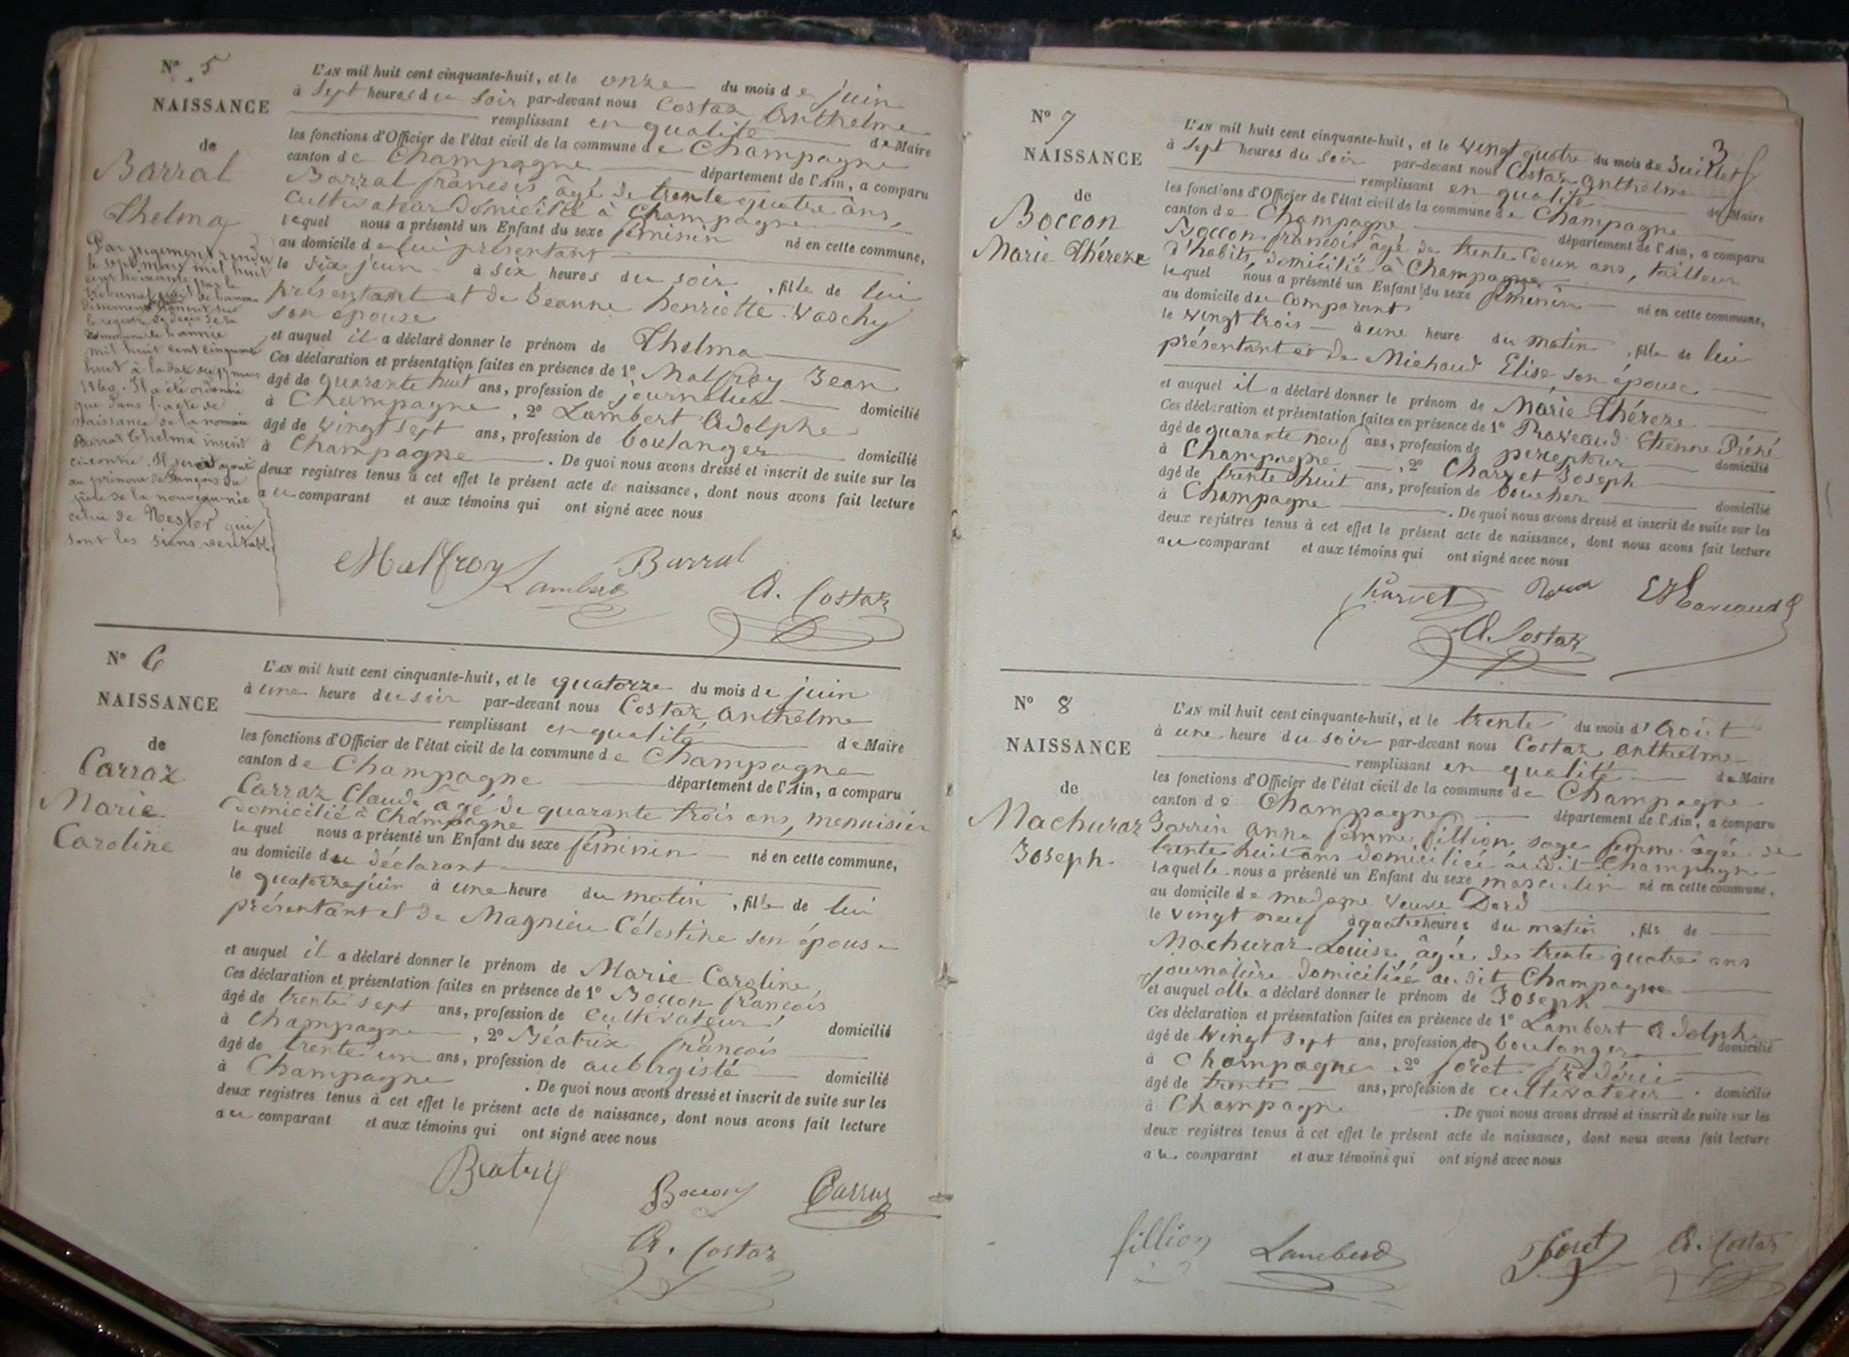 Nº 5
NAISSANCE
de
Barral
Thelma
Par jugement rendu
le sept mars mil huit
cent soixante par le
tribunal
mil huit cent cinquante
huit à la date du
1860. Il a été ordonné
que dans l'acte de
naissance de la nommée
Barral Thelma inscrit
ci contre. Il serait ajouté
au prénom de François du
père de la nouveau née
celui de Nestor qui
sont les siens véritables
L'AN mil huit cent cinquante-huit, et le onze du mois de juin
à Sept heures du Soir par-devant nous Costaz Anthelme
remplissant en qualité de Maire
les fonctions d'Officier de l'état civil de la commune de Champagne
canton de Champagne département de l'Ain, a comparu
Barral françois âgé de trente quatre ans,
cultivateur domicilié à Champagne
lequel nous a présenté un Enfant du sexe féminin né en cette commune,
au domicile de lui présentant
le dix juin à six heures du soir, fille de lui
présentant et de Jeanne henriette Vaschy
son épouse
et auquel il a déclaré donner le prénom de Thelma
Ces déclaration et présentation faites en présence de 1º Malfroy Jean
âgé de quarante huit ans, profession de journalier domicilié
à Champagne, 2º Lambert Adolphe
âgé de vingt sept ans, profession de boulanger domicilié
à Champagne. De quoi nous avons dressé et inscrit de suite sur les
deux registres tenus à cet effet le présent acte de naissance, dont nous avons fait lecture
au comparant et aux témoins qui ont signé avec nous
Malfroy Lambert Barral A. Costaz
Nº 6
NAISSANCE
de
Carraz
Marie
Caroline
L'AN mil huit cent cinquante-huit, et le quatorze du mois de juin
à une heure du soir par-devant nous Costaz anthelme
remplissant en qualité de Maire
les fonctions d'Officier de l'état civil de la commune de Champagne
canton de Champagne département de l'Ain, a comparu
Carraz Claude âgé de quarante trois ans, menuisier
domicilié à Champagne
lequel nous a présenté un Enfant du sexe féminin né en cette commune,
au domicile du déclarant
le quatorze juin à une heure du matin, fille de lui
présentant et de Magnieu Célestine son épouse
et auquel il a déclaré donner le prénom de Marie Caroline
Ces déclaration et présentation faites en présence de 1º Boccon françois
âgé de trente sept ans, profession de cultivateur domicilié
à Champagne, 2º Béatrix françois
âgé de trente un ans, profession de aubergiste domicilié
à Champagne. De quoi nous avons dressé et inscrit de suite sur les
deux registres tenus à cet effet le présent acte de naissance, dont nous avons fait lecture
au comparant et aux témoins qui ont signé avec nous
Béatrix Boccon Carraz
A. Costaz
3
Nº 7
NAISSANCE
de
Boccon
Marie Théreze
L'AN mil huit cent cinquante-huit, et le vingt quatre du mois de Juillet
à Sept heures du soir par-devant nous Costaz anthelme
remplissant en qualité de Maire
les fonctions d'Officier de l'état civil de la commune de Champagne
canton de Champagne département de l'Ain, a comparu
Boccon françois âgé de trente deux ans, tailleur
d'habits, domicilié à Champagne
lequel nous a présenté un Enfant du sexe féminin né en cette commune,
au domicile du comparant
le vingt trois à une heure du matin, fille de lui
présentant et de Michaud Elise son épouse
et auquel il a déclaré donner le prénom de Marie Théreze
Ces déclaration et présentation faites en présence de 1º Etienne
âgé de quarante neuf ans, profession de percepteur domicilié
à Champagne, 2º Charvet Joseph
âgé de trente huit ans, profession de boucher domicilié
à Champagne. De quoi nous avons dressé et inscrit de suite sur les
deux registres tenus à cet effet le présent acte de naissance, dont nous avons fait lecture
au comparant et aux témoins qui ont signé avec nous
Charvet
A. Costaz
Nº 8
NAISSANCE
de
Machuraz
Joseph
L'AN mil huit cent cinquante-huit, et le trente du mois d'Août
à une heure du soir par-devant nous Costaz anthelme
remplissant en qualité de Maire
les fonctions d'Officier de l'état civil de la commune de Champagne
canton de Champagne département de l'Ain, a comparu
anna femme fillion, sage femme âgée de
trente huit ans domiciliée audit Champagne
laquelle nous a présenté un Enfant du sexe masculin né en cette commune,
au domicile de madame veuve Dord
le vingt neuf à quatre heures du matin, fils de
Machuraz Louise, âgée de trente quatre ans
journalière domiciliée au dit Champagne
et auquel elle a déclaré donner le prénom de Joseph
Ces déclaration et présentation faites en présence de 1º Lambert Adolphe
âgé de vingt sept ans, profession de boulanger domicilié
à Champagne 2º foret frédéric
âgé de trente ans, profession de cultivateur domicilié
à Champagne. De quoi nous avons dressé et inscrit de suite sur les
deux registres tenus à cet effet le présent acte de naissance, dont nous avons fait lecture
au comparant et aux témoins qui ont signé avec nous
fillion Lambert foret A. Costaz